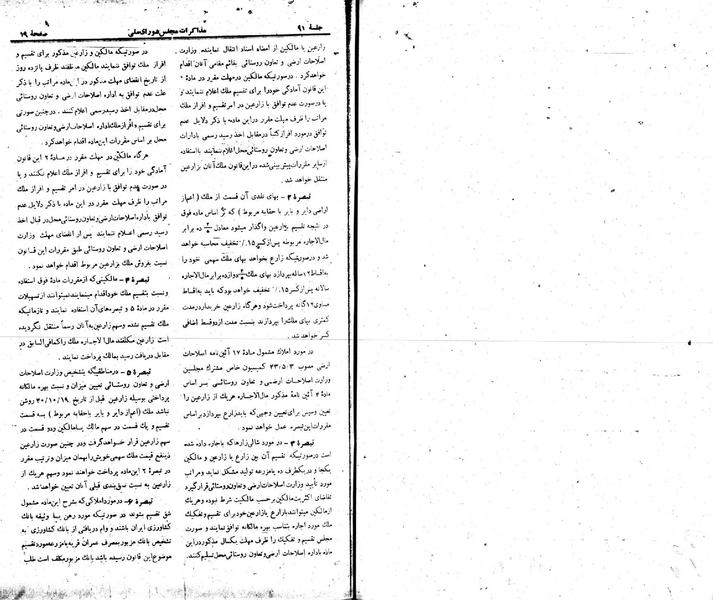 جلسه ۹۱
مذاکرات مجلس شورای ملی
صفحه ۱۹
زارعین یا مالکین از امضاء اسناد انتقال نماینده وزارت
اصلاحات ارضی و تعاون روستائی بقائم مقامی آنان اقدام
خواهد کرد. در صورتیکه مالکین در مهلت مقرر در ماده ۲
این قانون آمادگی خود را برای تقسیم ملک اعلام ننمایند و
یا در صورت عدم توافق با زارعین در امر تقسیم و افراز ملک
مراتب را ظرف مهلت مقرر در این ماده با ذکر دلایل عدم
توافق در مورد افراز کتباً در مقابل اخذ رسید رسمی بادارات
اصلاحات ارضی و تعاون روستائی محل اعلام ننمایند با استفاده
از سایر مقررات پیش بینی شده در این قانون ملک آنان بزارعین
منتقل خواهد شد.
تبصره ۲ - بهای نقدی آن قسمت از ملک (اعم از
اراضی دایر و بایر با حقابه مربوط) که بر اساس ماده فوق
در نتیجه تقسیم بزارعین واگذار میشود معادل ده برابر
مال‌الاجاره مربوطه پس از کسر ۱۵٪ تخفیف محاسبه خواهد
شد و در صورتیکه زارع بخواهد بهای ملک سهمی خود را
به اقساط ۱۲ ساله بپردازد بهای ملک دوازده برابر مال‌الاجاره
سالانه پس از کسر ۱۵٪ تخفیف خواهد بود که باید به اقساط
مساوی ۱۲ گانه پرداخت شود و هرگاه زارعین خریدار در مدت
کمتری بهای ملک را بپردازند بنسبت مدت از دو قسط اضافی
کسر خواهد شد.
در مورد املاک مشمول ماده ۱۷ آئین نامه اصلاحات
ارضی مصوب ۴۳/۵/۳ کمیسیون خاص مشترک مجلسین
وزارت اصلاحات ارضی و تعاون روستائی بر اساس
ماده ۴ آئین نامه مذکور میزان مال‌الاجاره هریک از زارعین را
تعیین و سپس برای تعیین وجهی که باید زارع بپردازد بر اساس
مقررات این تبصره عمل خواهد نمود.
تبصره ۳ - در مورد شالی‌زارها که باجاره داده شده
در صورتیکه تقسیم آن بین زارع یا زارعین و مالکین
یکجا و در یکطرف ده یا مزرعه تولید مشکل نماید و مراتب
مورد تأیید وزارت اصلاحات ارضی و تعاون روستائی قرار گیرد
تقاضای اکثریت مالکین بر حسب مالکیت شرط نبوده و هریک
از مالکین میتوانند با زارع یا زارعین خود برای تقسیم و تفکیک
ملک مورد اجاره بتناسب بهره مالکانه توافق نمایند و صورت
مجلس تقسیم و تفکیک را ظرف مهلت یکسال مذکور در این
ماده باداره اصلاحات ارضی و تعاون روستائی محل تسلیم کنند.
در صورتیکه مالکین و زارعین مذکور برای تقسیم و
افراز ملک توافق ننمایند مالکین مکلفند ظرف پانزده روز
از تاریخ انقضای مهلت مذکور در این ماده مراتب را با ذکر
علت عدم توافق به اداره اصلاحات ارضی و تعاون روستائی
محل در مقابل اخذ رسید رسمی اعلام کنند. در چنین صورتی
برای تقسیم و افراز ملک اداره اصلاحات ارضی و تعاون روستائی
محل بر اساس مقررات این ماده اقدام خواهد کرد.
هرگاه مالکین در مهلت مقرر در ماده ۲ این قانون
آمادگی خود را برای تقسیم و افراز ملک اعلام نکنند و یا
در صورت عدم توافق با زارعین در امر تقسیم و افراز ملک
مراتب را ظرف مهلت مقرر در این ماده با ذکر دلایل عدم
توافق باداره اصلاحات ارضی و تعاون روستائی محل در قبال اخذ
رسید رسمی اعلام ننمایند پس از انقضای مهلت وزارت
اصلاحات ارضی و تعاون روستائی طبق مقررات این قانون
نسبت بفروش ملک بزارعین مربوط اقدام خواهد نمود.
تبصره ۴ - مالکینی که از مقررات ماده فوق استفاده
و نسبت بتقسیم ملک خود اقدام مینمایند نمیتوانند از تسهیلات
مقرر در ماده ۵ و تبصره‌های آن استفاده نمایند و تا زمانیکه
ملک تقسیم نشده و سهم زارعین به آنان رسماً منتقل نگردیده
است زارعین مکلفند مال‌الاجاره ملک را کمافی‌السابق در
مقابل دریافت رسید بمالک پرداخت نمایند.
تبصره ۵ - در مناطقیکه بتشخیص وزارت اصلاحات
ارضی و تعاون روستائی تعیین میزان و نسبت بهره مالکانه
پرداختی بوسیله زارعین قبل از تاریخ ۴۰/۱۰/۱۹ روشن
نباشد ملک (اعم از دایر و بایر با حقابه مربوط) بسه قسمت
تقسیم و یک قسمت در سهم مالک یا مالکین و دو قسمت در
سهم زارعین قرار خواهد گرفت و در چنین صورت زارعین
ذینفع قیمت ملک سهمی خویش را بهمان میزان و ترتیب مقرر
در تبصره ۲ این ماده پرداخت خواهند نمود وسهم هریک از
زارعین به نسبت نسق‌بندی قبلی آنان تعیین خواهد شد.
تبصره ۶ - در مورد املاکی که بشرح این ماده مشمول
شق تقسیم بشوند در صورتیکه مورد رهن یا وثیقه بانک
کشاورزی ایران باشند و وام دریافتی از بانک کشاورزی به
تشخیص بانک مزبور بمصرف عمران قریه یا مزرعه مورد تقسیم
موضوع این قانون رسیده باشد بانک مزبور مکلف است طلب